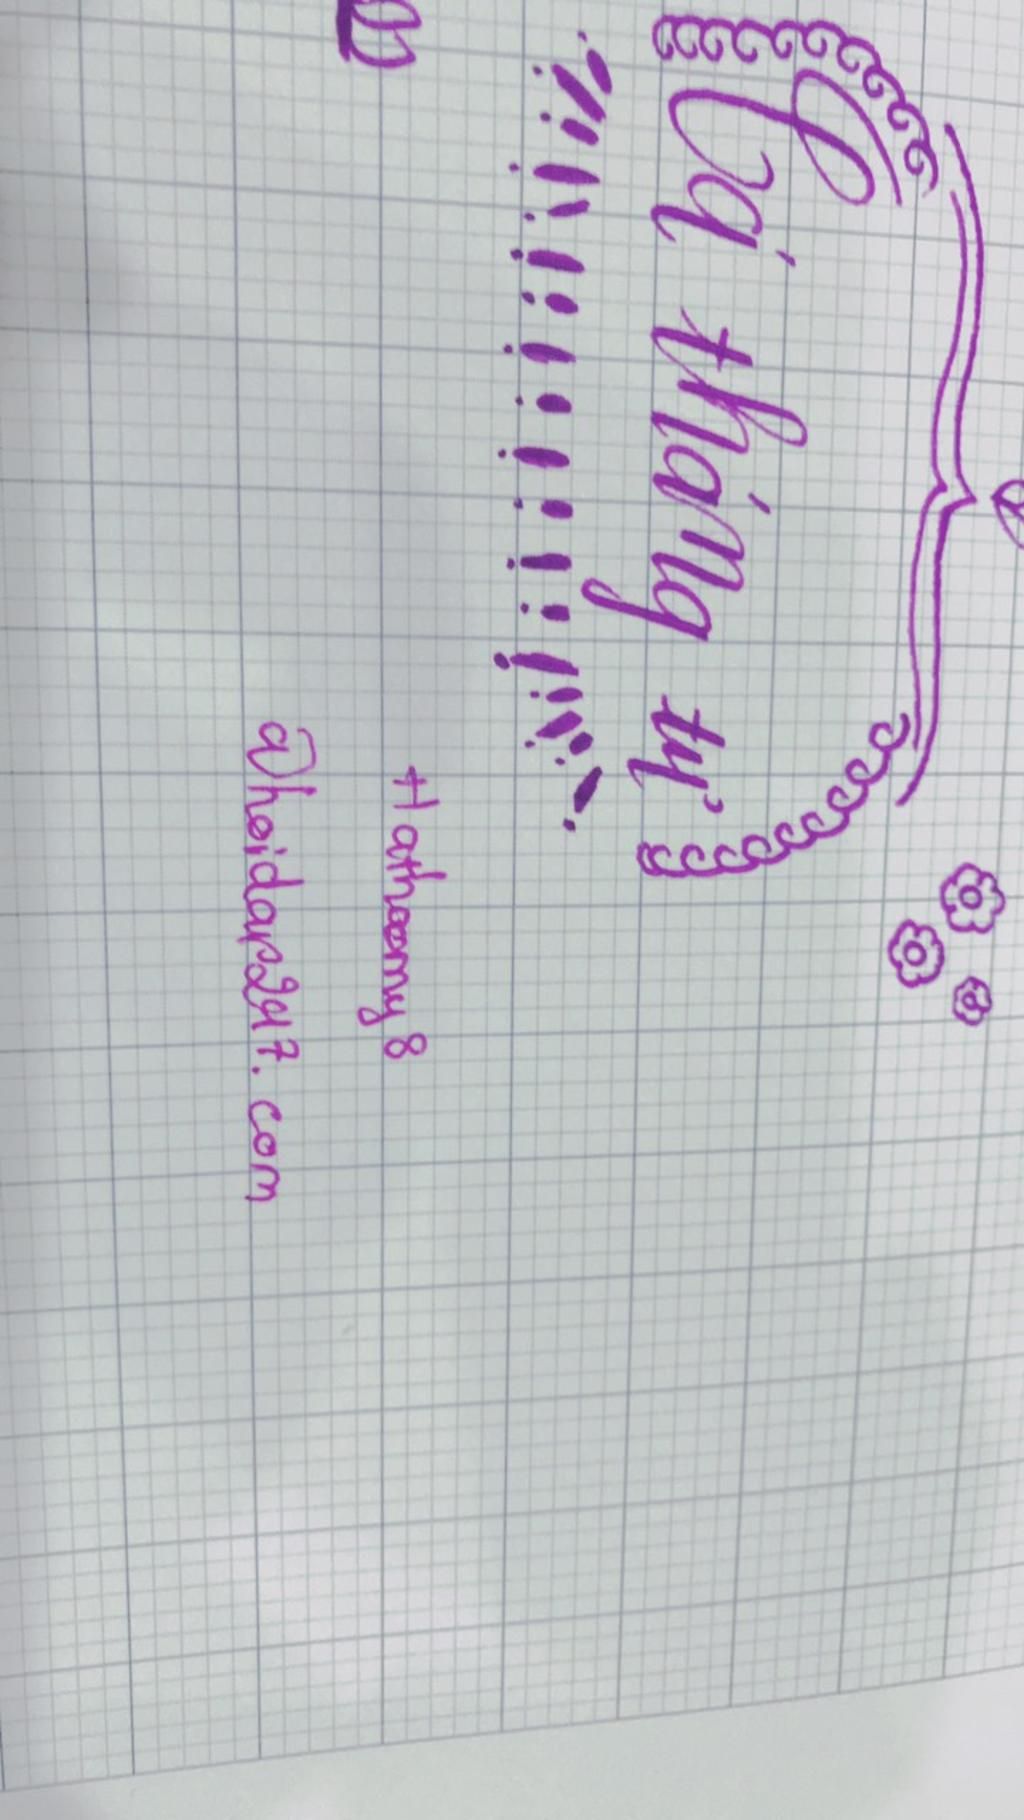 Cá tháng tư
Hathaomy8
@hoidap247.com